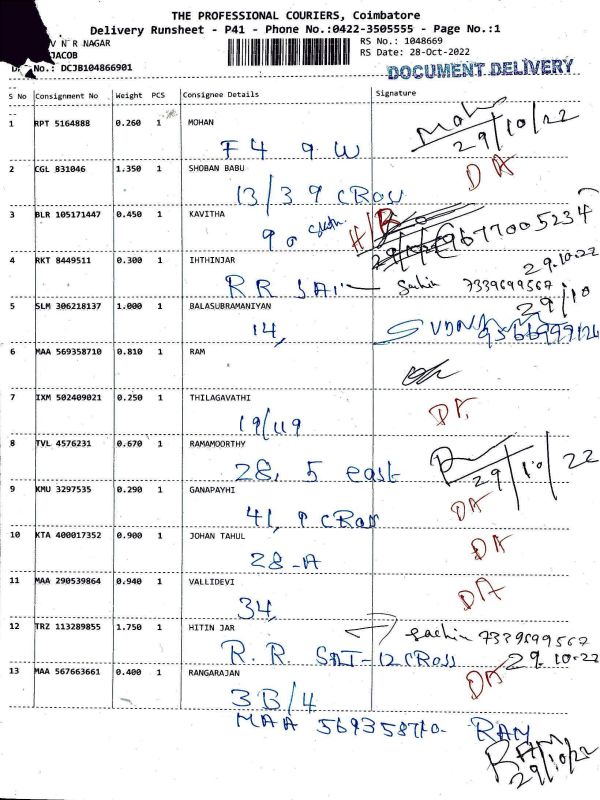 THE PROFESSIONAL COURIERS, Coimbatore
Delivery Runsheet - P41 - Phone No.:0422-3505555 - Page No.:1
V N R NAGAR
JACOB
No.: DCJB104866901
RS No.: 1048669
RS Date: 28-Oct-2022
DOCUMENT DELIVERY
S No Consignment No Weight PCS Consignee Details Signature
1 RPT 5164888 0.260 1 MOHAN
F4 9 W
29/10/22
DA
2 CGL 831046 1.350 1 SHOBAN BABU
13/3 9 CROSS
3 BLR 105171447 0.450 1 KAVITHA
90
9677005234
4 RKT 8449511 0.300 1 IHTHINJAR
RR SAI
Sachin 7339699567
29.10.22
5 SLM 306218137 1.000 1 BALASUBRAMANIYAN
14,
29/10
6 MAA 569358710 0.810 1 RAM
7 IXM 502409021 0.250 1 THILAGAVATHI
19/119
DA
8 TVL 4576231 0.670 1 RAMAMOORTHY
28, 5 east
29/10/22
9 KMU 3297535 0.290 1 GANAPAYHI
41, 9 CROSS
DA
10 KTA 400017352 0.900 1 JOHAN TAHUL
28-A
DA
11 MAA 290539864 0.940 1 VALLIDEVI
34,
DA
12 TRZ 113289855 1.750 1 HITIN JAR
R.R SAI-12 CROSS
Sachin 7339699567
29.10.22
13 MAA 567663661 0.400 1 RANGARAJAN
3B/4
DA
MAA 569358710- RAM
RAM
29/10/22